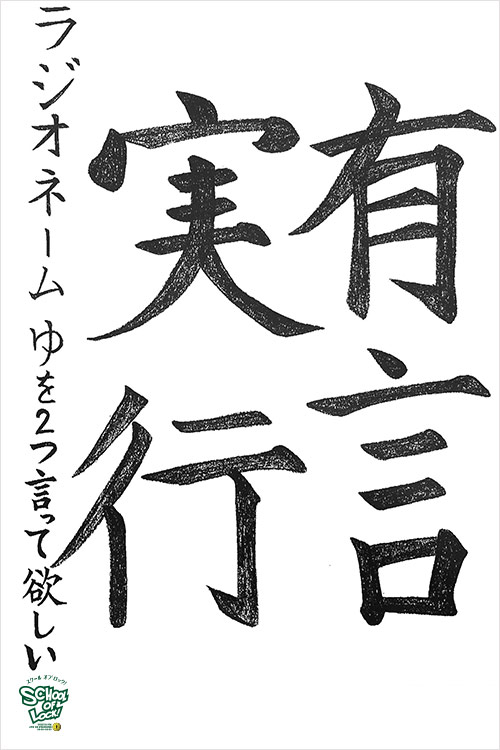 有言
実行
ラジオネーム ゆを2つ言って欲しい
スクール オブ ロック!
SCHOOL
OF
LOCK!